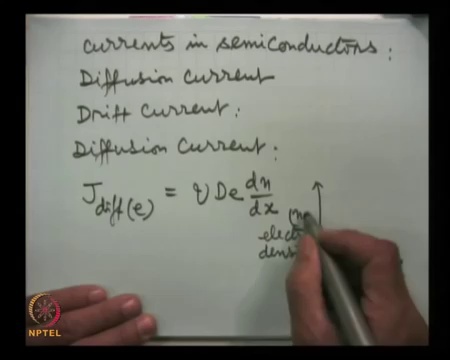 Currents in semiconductors:
Diffusion Current
Drift Current:
Diffusion Current:
J diff(e) = q De dn/dx
(n
elect
densi
NPTEL